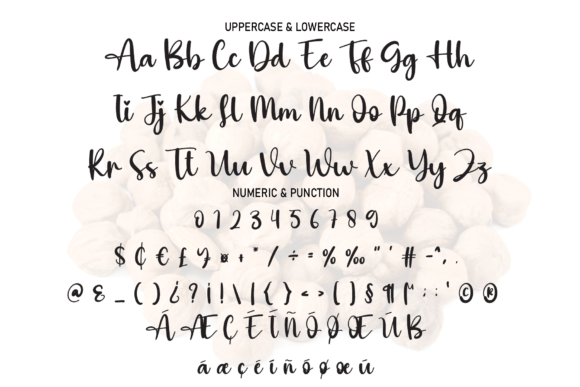 UPPERCASE & LOWERCASE
Aa Bb Cc Dd Ee Ff Gg Hh
Ii Jj Kk Ll Mm Nn Oo Pp Qq
Rr Ss Tt Uu Vv Ww Xx Yy Zz
NUMERIC & PUNCTION
0 1 2 3 4 5 6 7 8 9
$ ¢ € £ ¥ ¤ + * / ÷ = % ‰ " ' # - ^ , .
@ & _ ( ) ¿ ? ¡ ! \ | { } < > ( ) § ¶ : ; ' © ®
Á Æ Ç É Í Ñ Ó Ø Œ Ú ß
á æ ç é í ñ ó ø œ ú